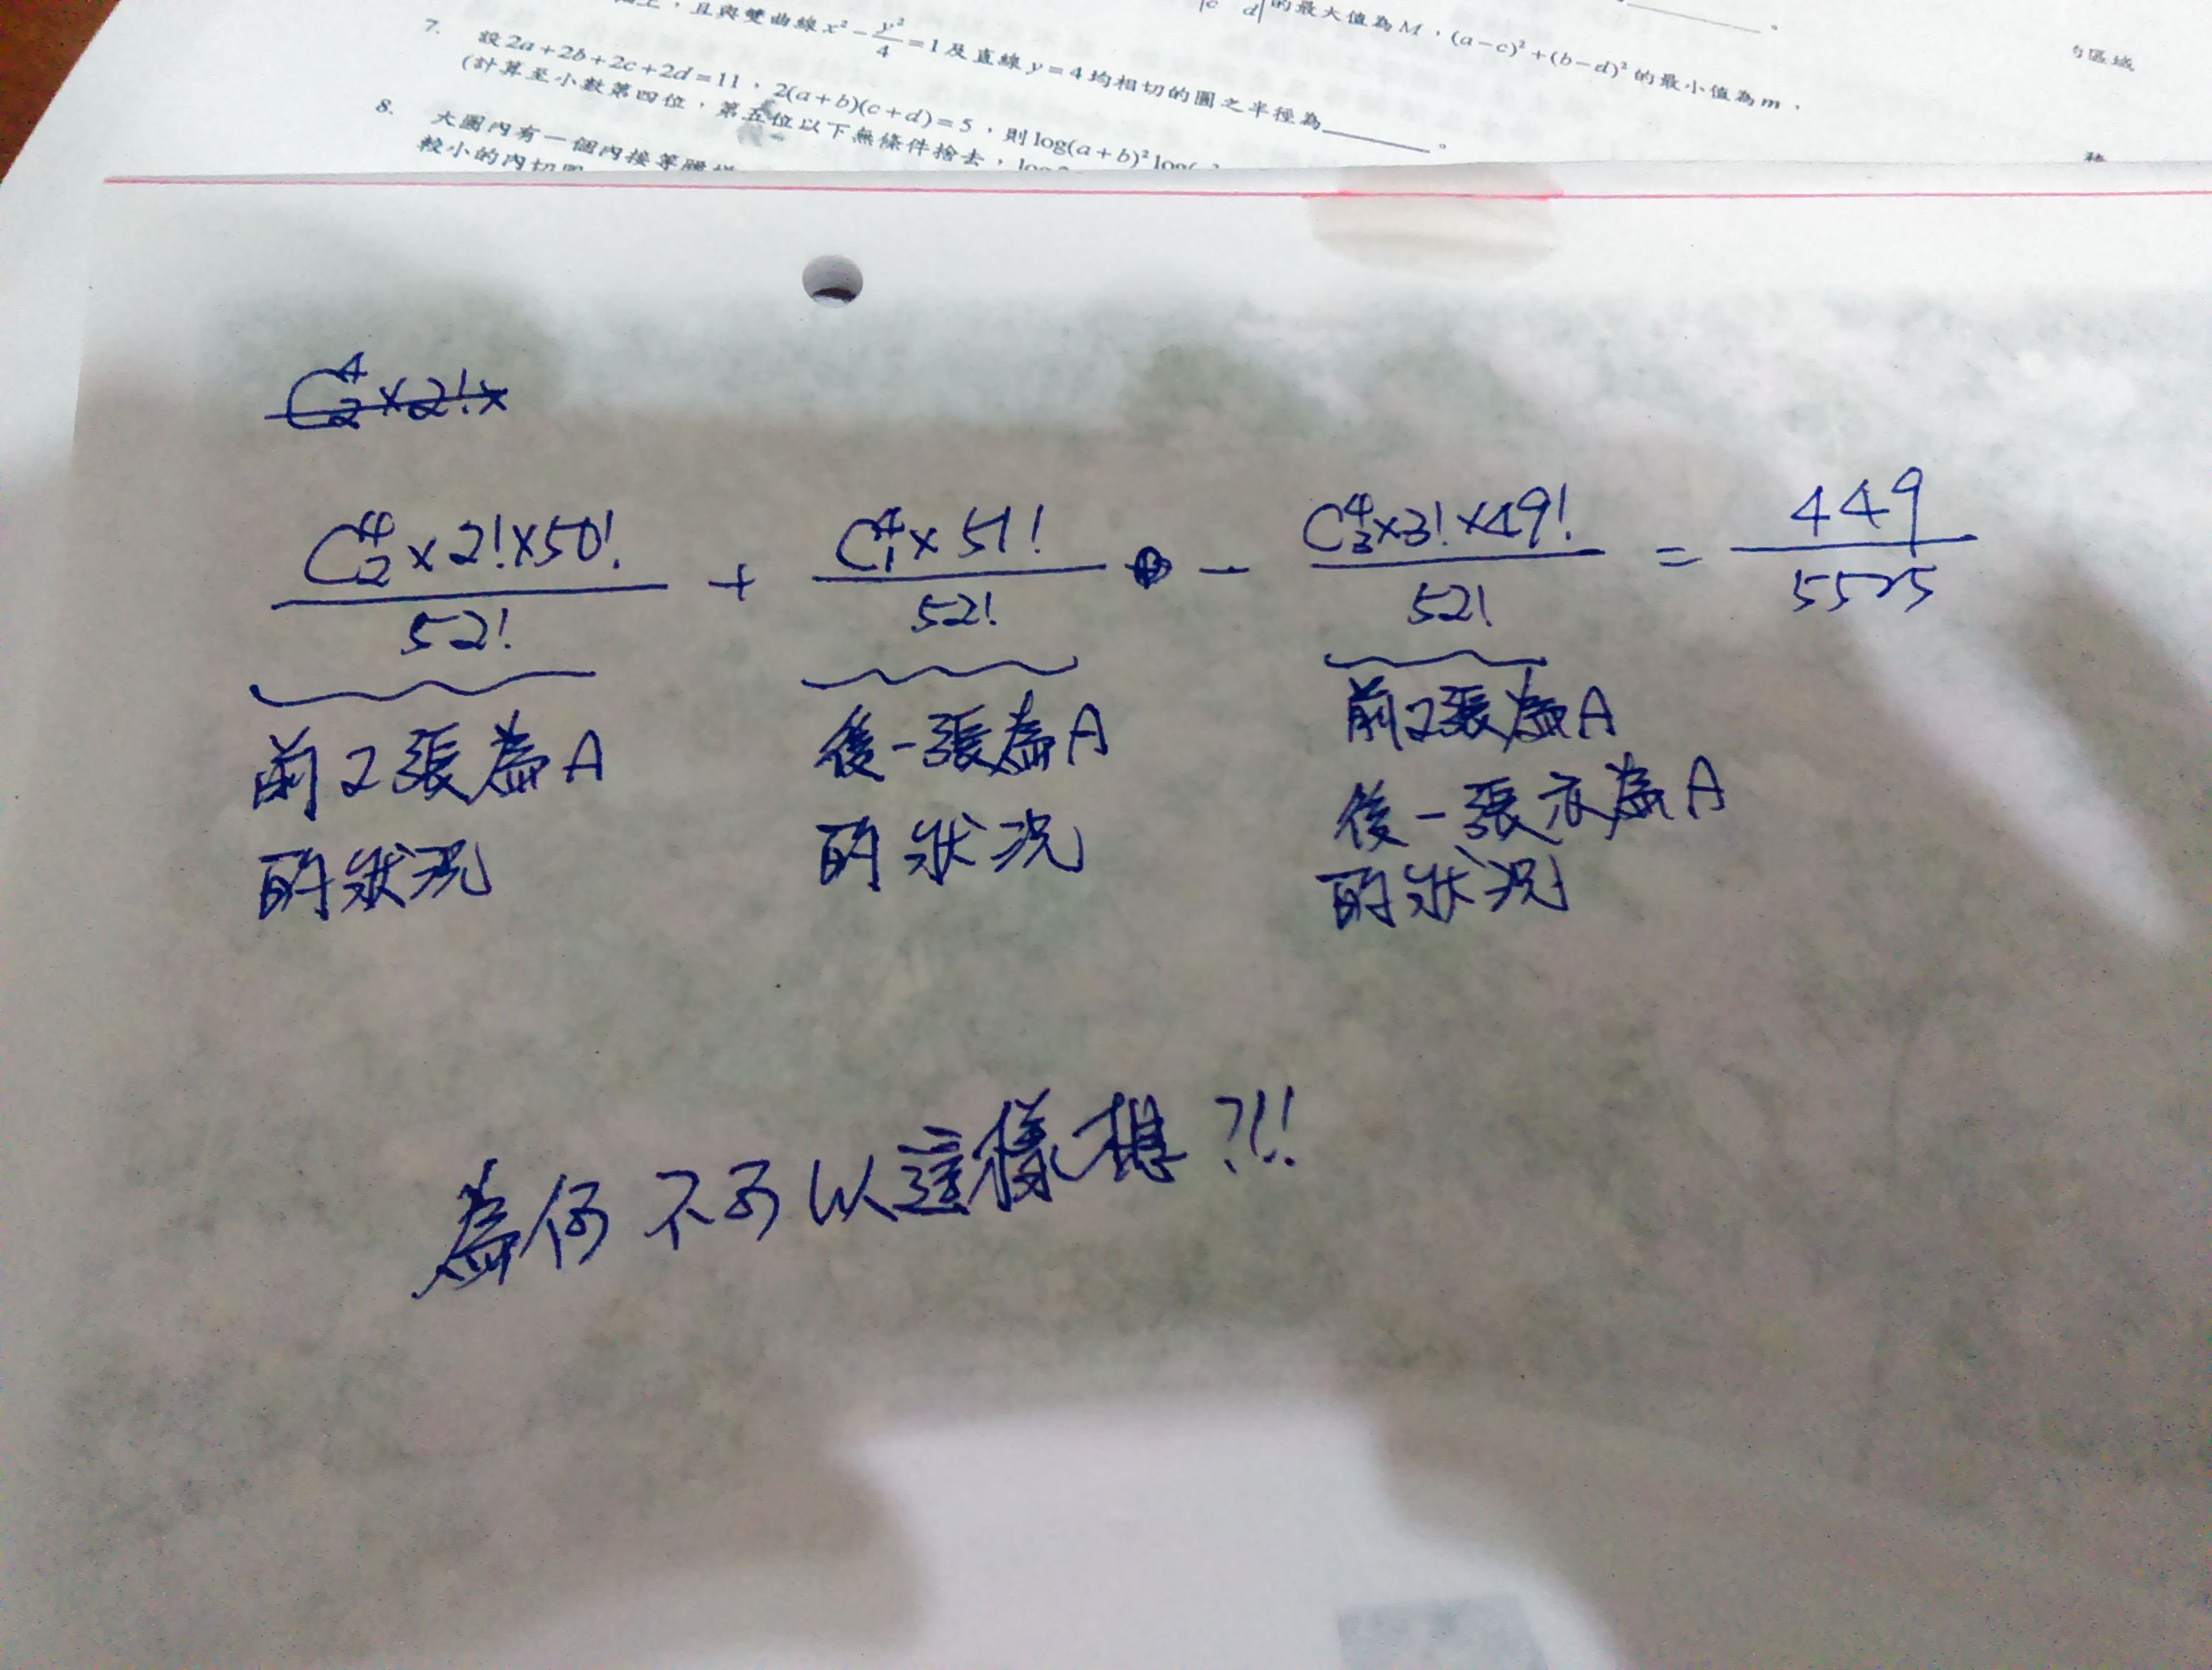 ，且與雙曲線 x² − y²/4 = 1 及直線 y = 4 均相切的圓之半徑為＿＿＿。
|c d| 的最大值為 M，(a−c)²+(b−d)² 的最小值為 m，
7. 設 2a+2b+2c+2d=11，2(a+b)(c+d)=5，則 log(a+b)²
(計算至小數第四位，第五位以下無條件捨去，
8. 大圓內有一個內接等腰
較小的內切圓
區域
C⁴₂×2!×
C⁴₂×2!×50!/52! + C⁴₁×51!/52! − C⁴₃×3!×49!/52! = 449/5525
前2張為A
的狀況
後一張為A
的狀況
前2張為A
後一張亦為A
的狀況
為何不可以這樣想?!!